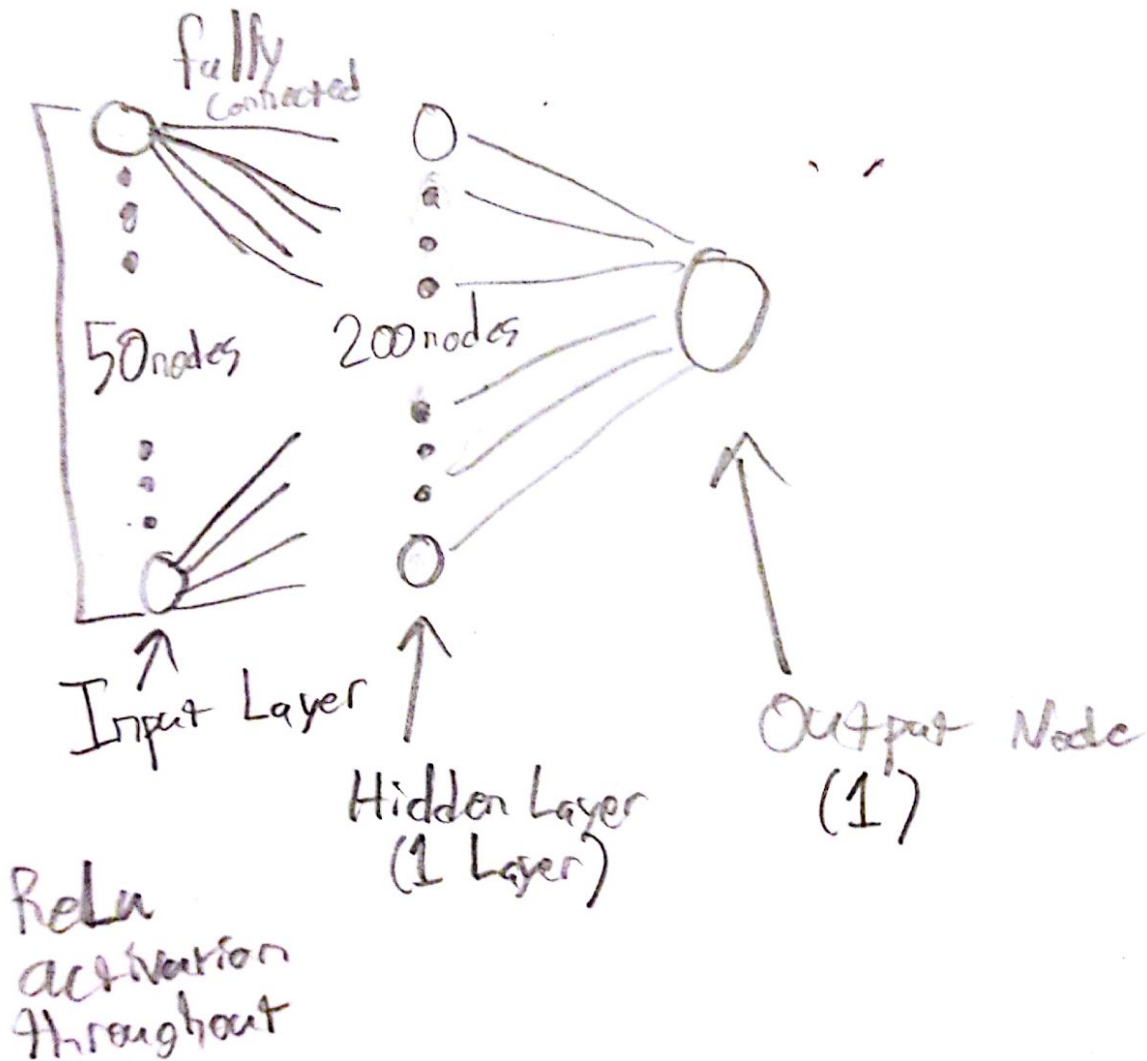 fully
connected
50nodes
200nodes
Input Layer
Hidden Layer
(1 Layer)
Output Node
(1)
ReLu
activation
throughout